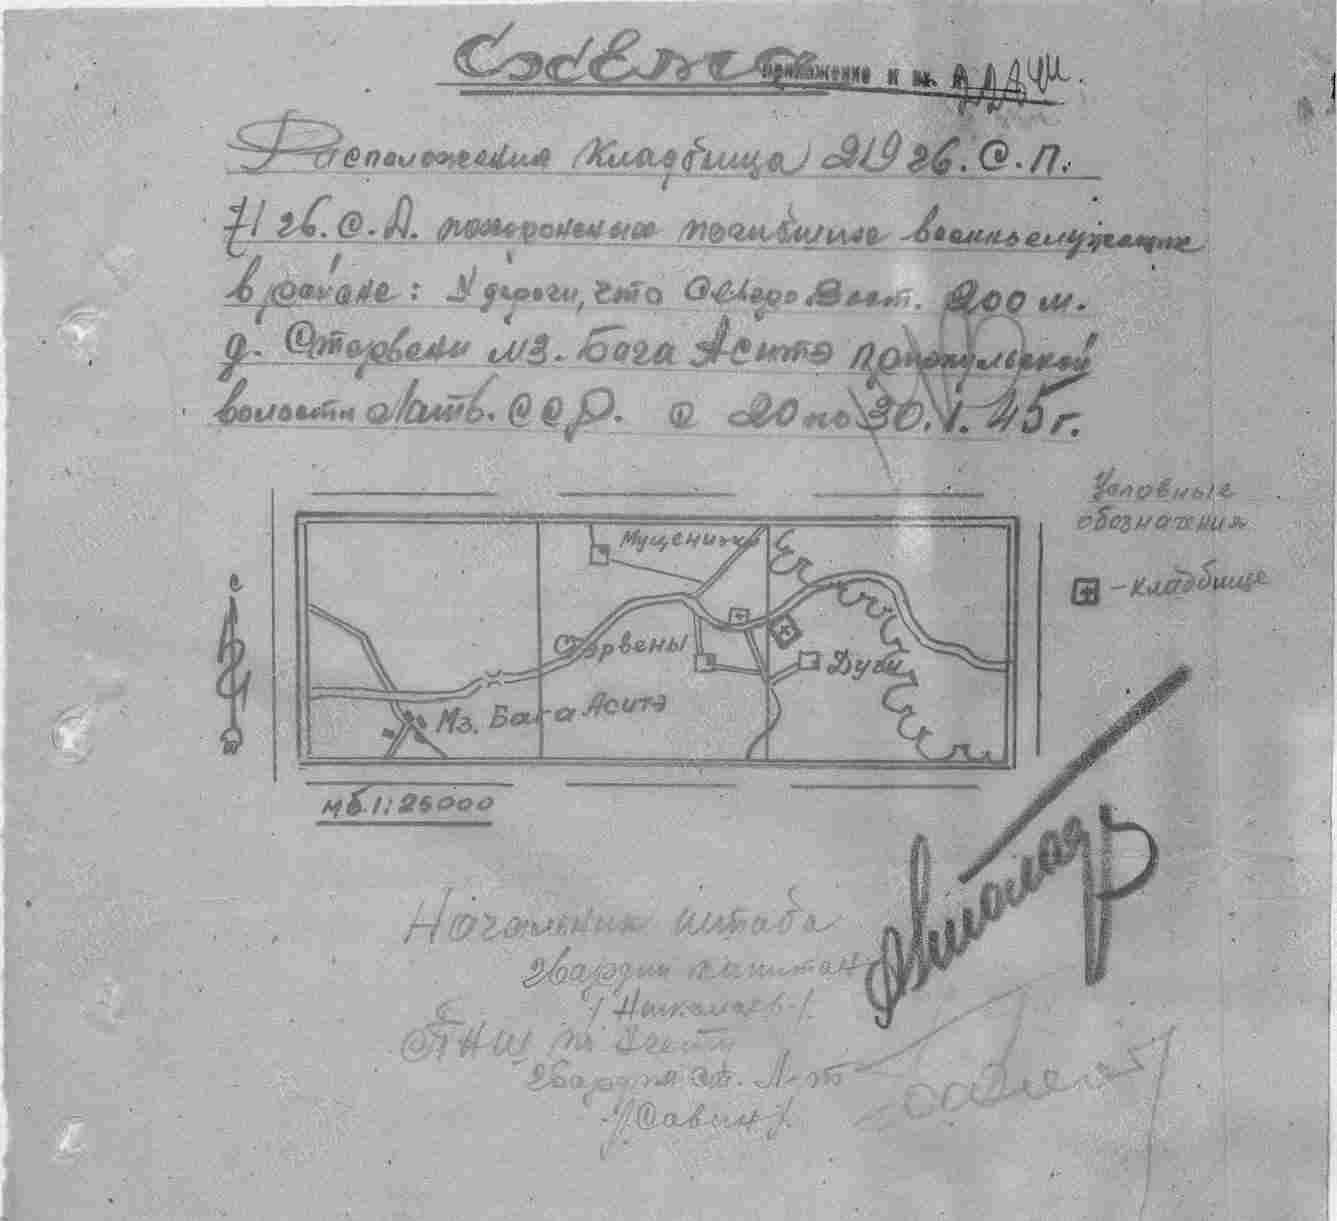 Схема
приложение к вх.
Расположения кладбища 219 гв. С.П.
71 гв. С.Д. похороненых погибших военнослужащих
в районе: У дороги, что Северо Вост. 200 м.
д. Старвени мз. Бага Аситэ
волости Латв. ССР. с 20 по 30.1.45 г.
Условные
обозначения
- кладбище
С
Мущенишки
Старвены
Дуби
Мз. Бага Аситэ
мб. 1:25000
Начальник штаба
гвардии капитан
/Николаев/.
ПНШ по учету
гвардии ст. Л-т
/Савин/.